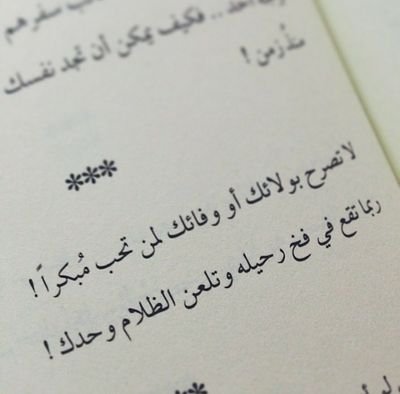 أحد.. فكيف يمكن أن تجد نفسك
منذُ زمن !
***
لا تصرح بولائك أو وفائك لمن تحب مُبكراً !
ربما تقع في فخ رحيله وتلعن الظلام وحدك !
***